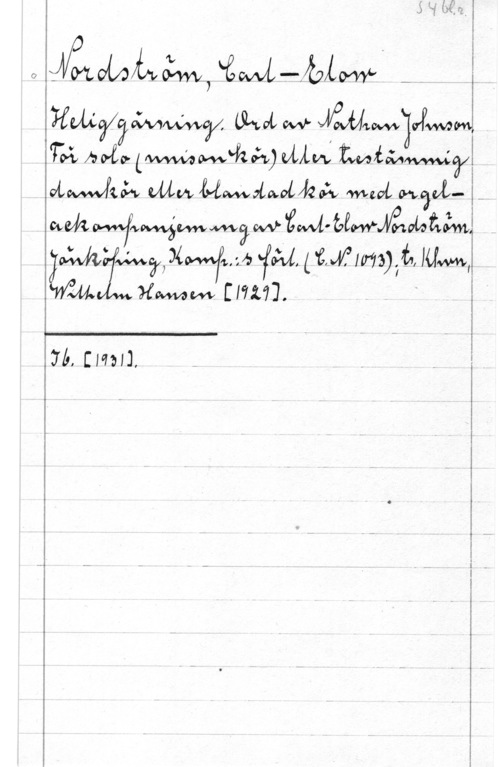 Nordström, Carl-Elow
Helig gärning. Ord av Nathan Johnson.
För solo (unison kör) eller trestämmig
damkör eller blandad kör med orgel-
ackompanjemang av Carl-Elow Nordström.
Jönköping, Komp.:s förl. (C.N. 1093); tr. Khvn,
Wilhelm Hansen [1929].
Ib. [1931].